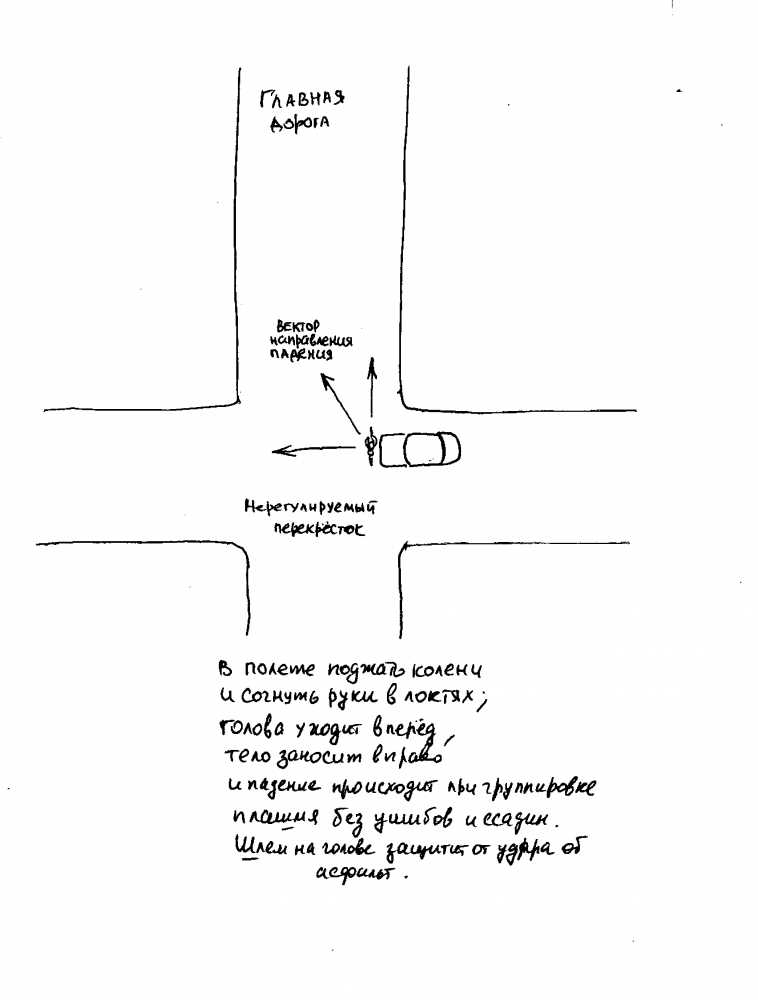 ГЛАВНАЯ
ДОРОГА
ВЕКТОР
направления
падения
Нерегулируемый
перекрёсток
В полете поджать колени
и согнуть руки в локтях;
голова уходит вперёд,
тело заносит вправо
и падение происходит при группировке
плашмя без ушибов и ссадин.
Шлем на голове защитит от удара об
асфальт.